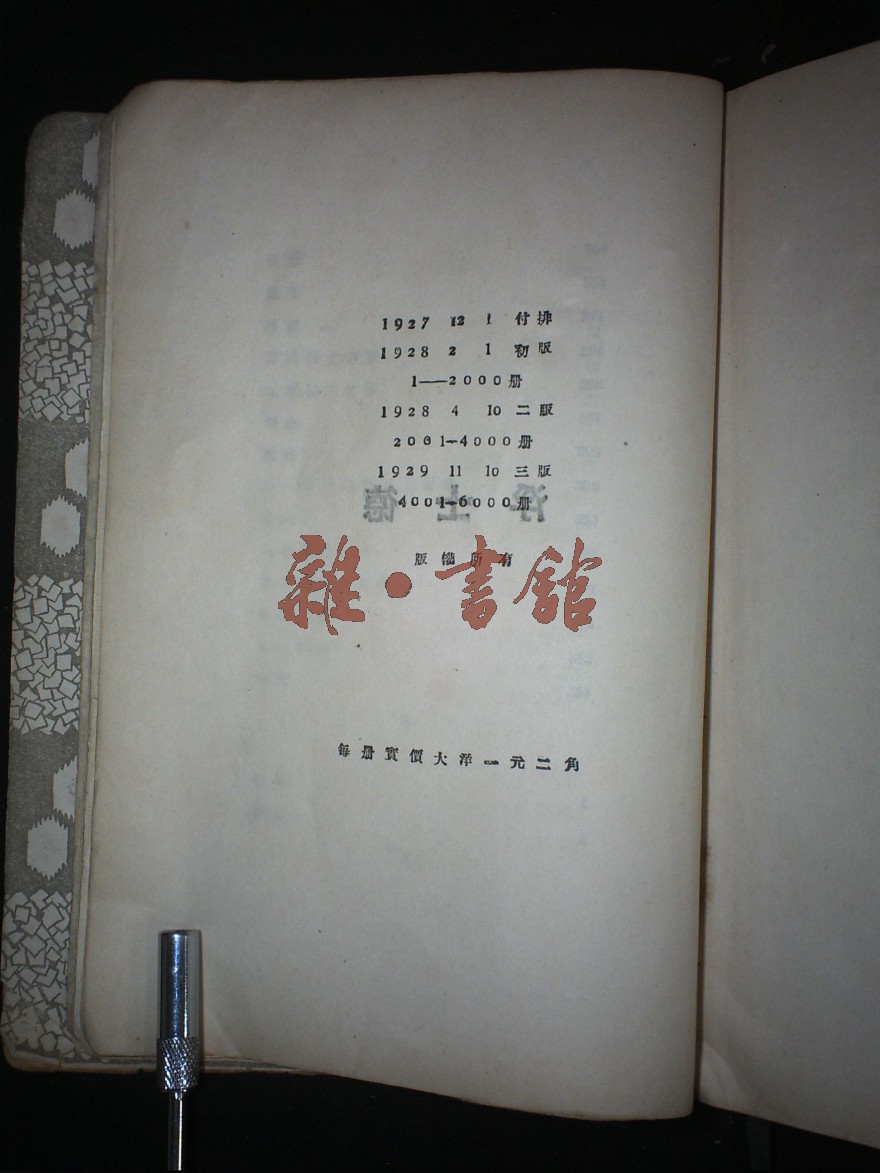 1927 12 1 付排
1928 2 1 初版
1——2000册
1928 4 10 二版
2001—4000册
1929 11 10 三版
4001—6000册
版權所有
雜·書館
每册實價大洋一元二角